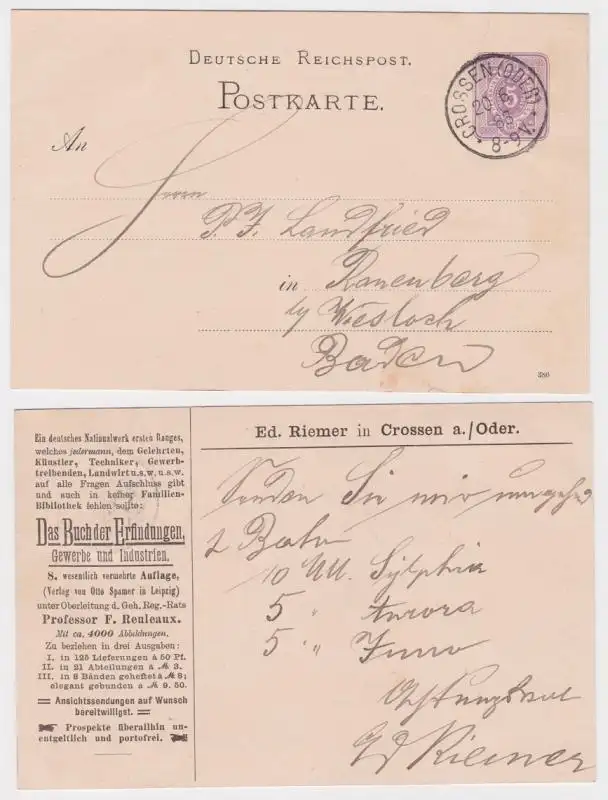 DEUTSCHE REICHSPOST.
POSTKARTE.
CROSSEN (ODER)
20 6
88
8-9V.
5
An
Herrn
P. J. Landfried
in Rauenberg
by Wiesloch
Baden
386
Ein deutsches Nationalwerk ersten Ranges,
welches jedermann, dem Gelehrten,
Künstler, Techniker, Gewerb-
treibenden, Landwirt u.s.w. u.s.w.
auf alle Fragen Aufschluss gibt
und auch in keiner Familien-
Bibliothek fehlen sollte:
Das Buch der Erfindungen,
Gewerbe und Industrien.
8. wesentlich vermehrte Auflage,
(Verlag von Otto Spamer in Leipzig)
unter Oberleitung d. Geh. Reg.-Rats
Professor F. Reuleaux.
Mit ca. 4000 Abbildungen.
Zu beziehen in drei Ausgaben:
I. in 125 Lieferungen à 50 Pf.
II. in 21 Abteilungen à ℳ 3.
III. in 8 Bänden geheftet à ℳ 8;
elegant gebunden à ℳ 9. 50.
Ansichtssendungen auf Wunsch
bereitwilligst.
Prospekte überallhin un-
entgeltlich und portofrei.
Ed. Riemer in Crossen a./Oder.
Senden Sie mir umgehend
Bahn
10 Mll. Sylphia
5 " Aurora
5 " Juno
Achtungsvoll
Ed Riemer